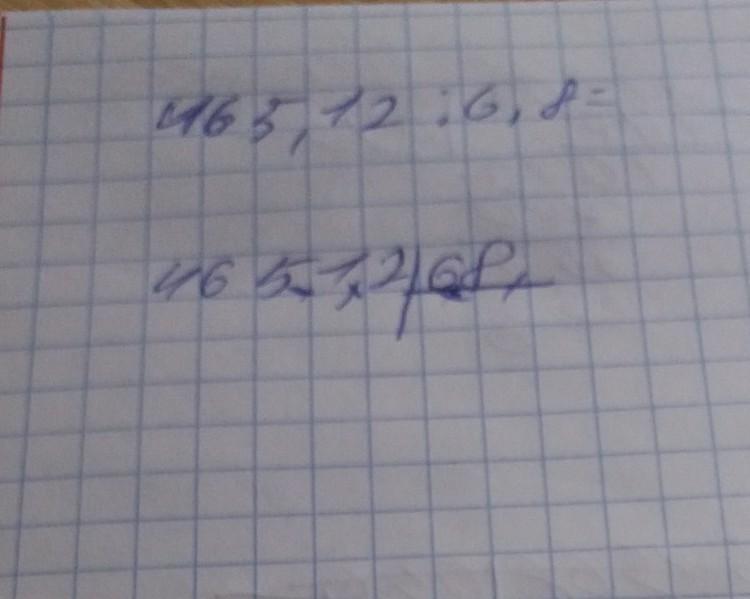 465,12 : 6,8 =
4651,2 | 68,